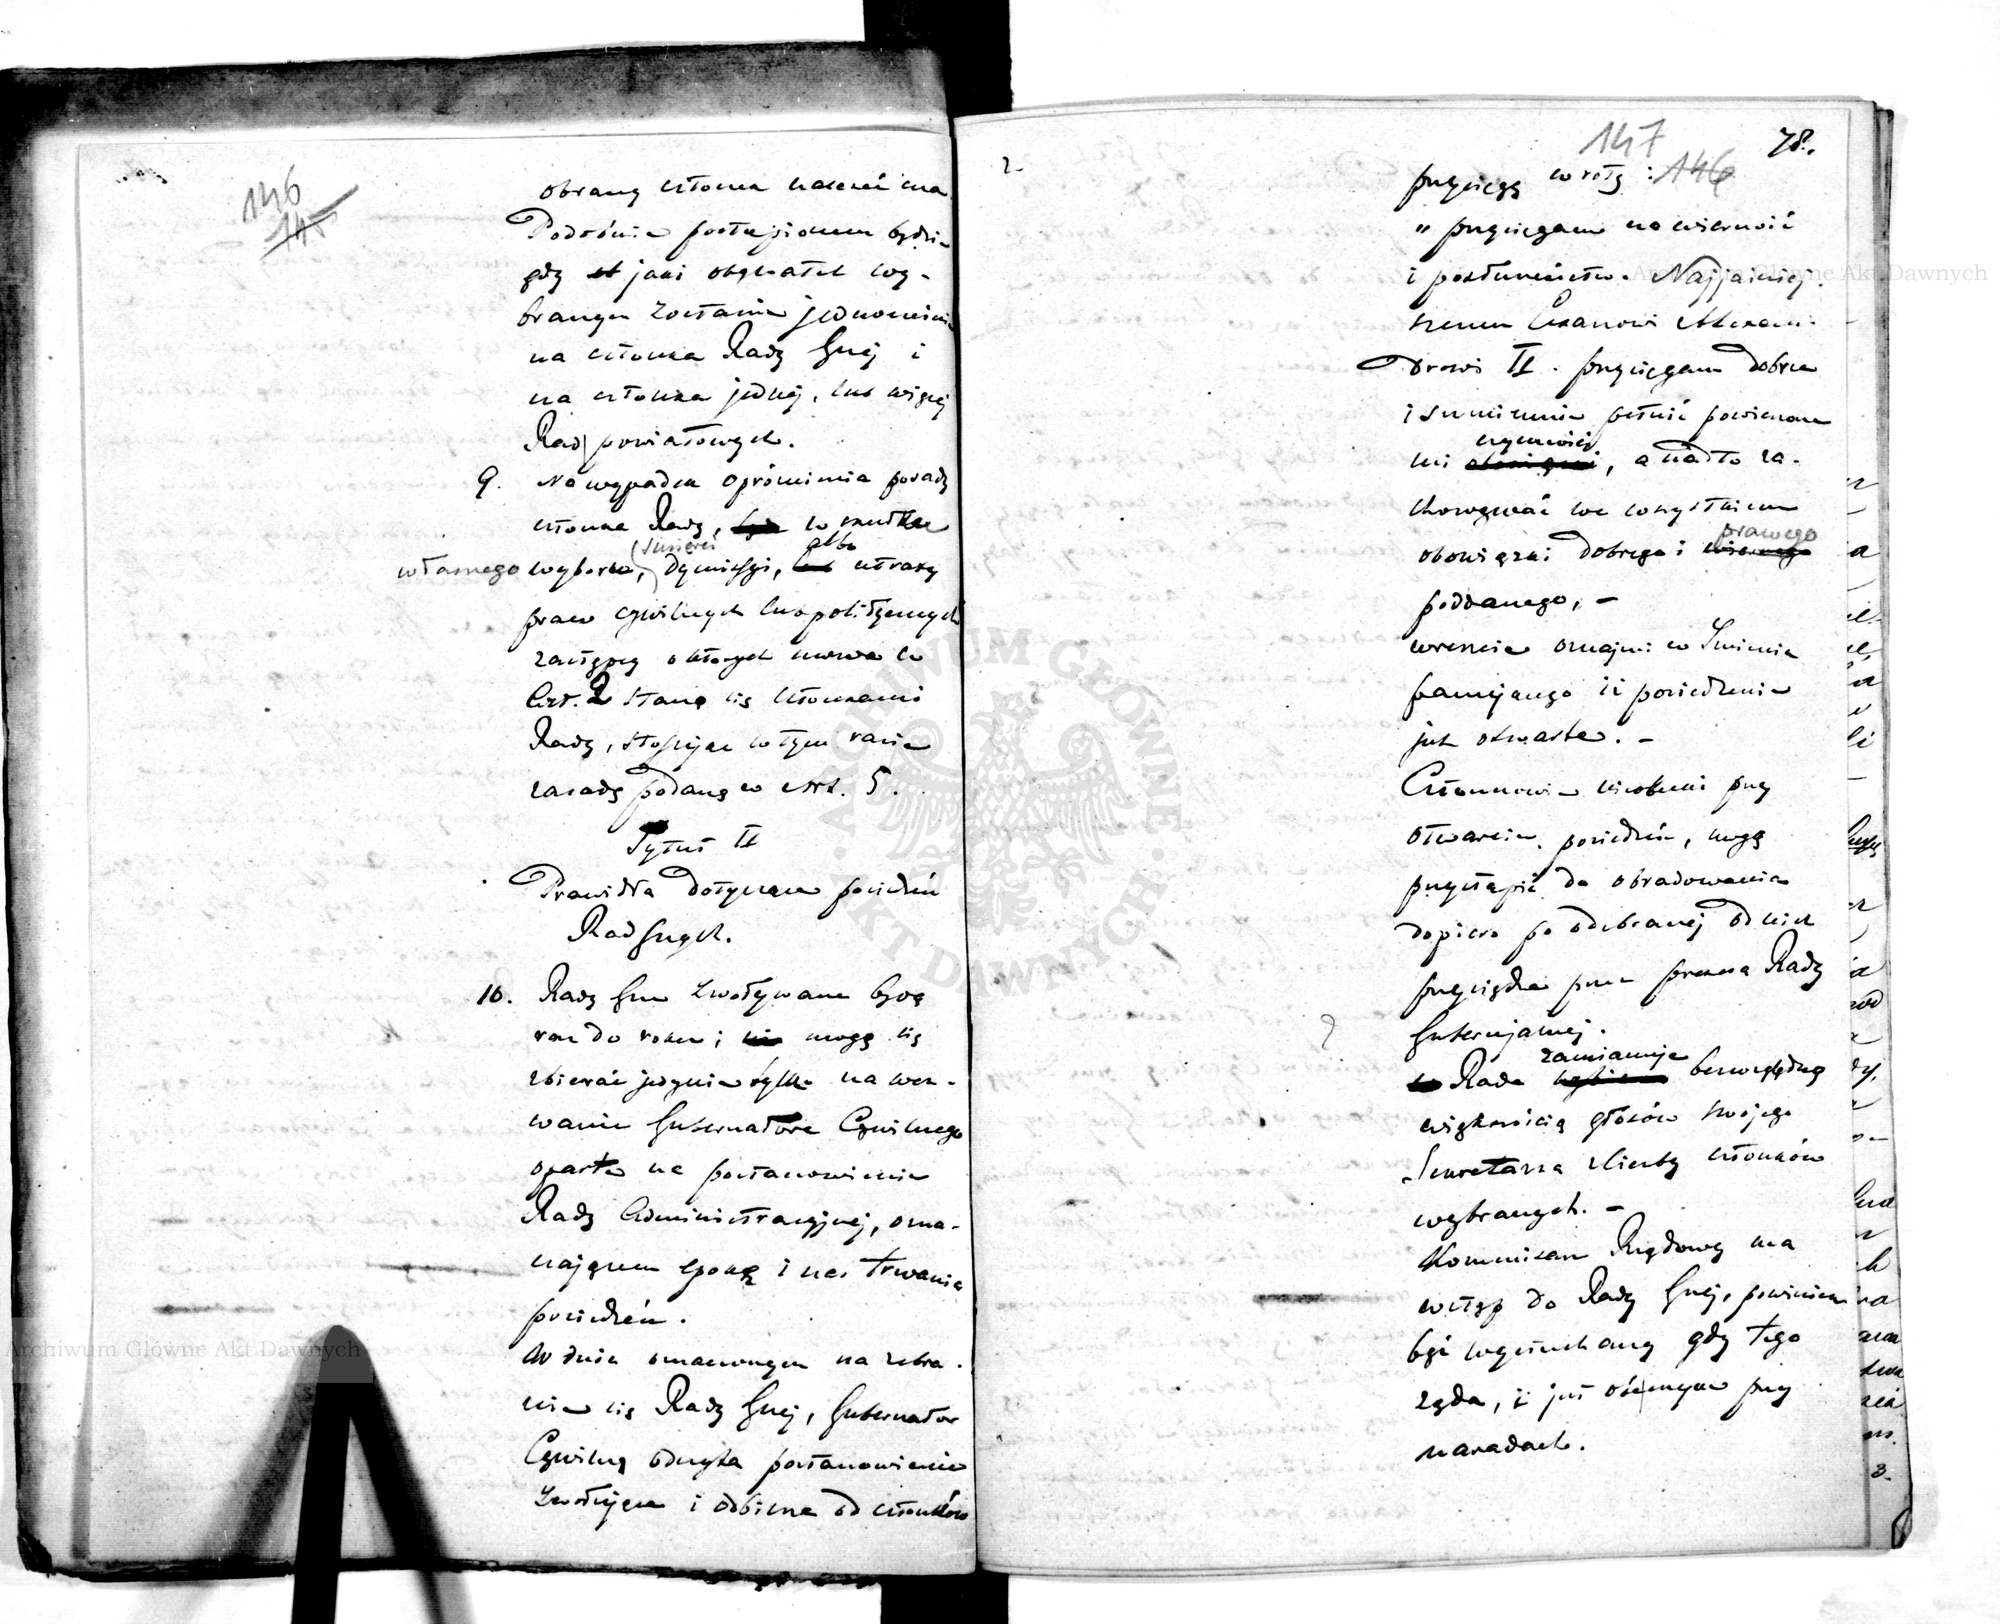 146
145
obrany członek należeć ma
Podobnie postąpionem będzie
gdy st jaki obywatel wy-
branym zostanie jednocześnie
na członka Rady Gnej i
na członka jednej, lub więcej
Rad powiatowych.
9. Na wypadek opróżnienia posady
członka Rady, w skutku
śmierci albo
własnego wyboru, dymissyi, lub utraty
praw cywilnych lub politycznych
zastępcy o których mowa w
Art. 2 staną się członkami
Rady, stosując w tym razie
zasadę podaną w Art. 5.
Tytuł II
Prawidła dotyczące posiedzeń
Rad Gnych.
10. Rady Gne zwoływane będą
raz do roku; nie mogą się
zbierać jedynie tylko na wez-
wanie Gubernatora Cywilnego
oparte na postanowieniu
Rady Administracyjnej, ozna-
czającem epokę i czas trwania
posiedzeń.
W dniu oznaczonym na zebra-
nie się Rady Gnej, Gubernator
Cywilny odczyta postanowienie
zwołujące i odbierze od członków
2.
147
146
78.
przysięgę w rotę :
" przysięgam na wierność
i posłuszeństwo Najjaśniej-
szemu Cesarzowi Alexan-
drowi II. przysięgam dobrze
i sumiennie pełnić powierzone
czynności
mi obowiązki, a nadto za-
chowywać we wszystkiem
prawego
obowiązki dobrego i wiernego
poddanego, -
wreszcie oznajmi w Imieniu
panującego iż posiedzenia
już otwarte. -
Członkowie nieobecni przy
otwarciu posiedzeń, mogą
przystąpić do obradowania
dopiero po odebranej od nich
przysiędze przez prezesa Rady
Gubernjalnej.
zamianuje
Rada bezwzględną
większością głosów swojego
Sekretarza z liczby członków
wybranych. -
Kommissarz Rządowy ma
wstęp do Rady Gnej, powinien
być wysłuchany gdy tego
żąda, i jest obecnym przy
naradach.
Archiwum Główne Akt Dawnych
Archiwum Główne Akt Dawnych
ARCHIWUM GŁÓWNE AKT DAWNYCH